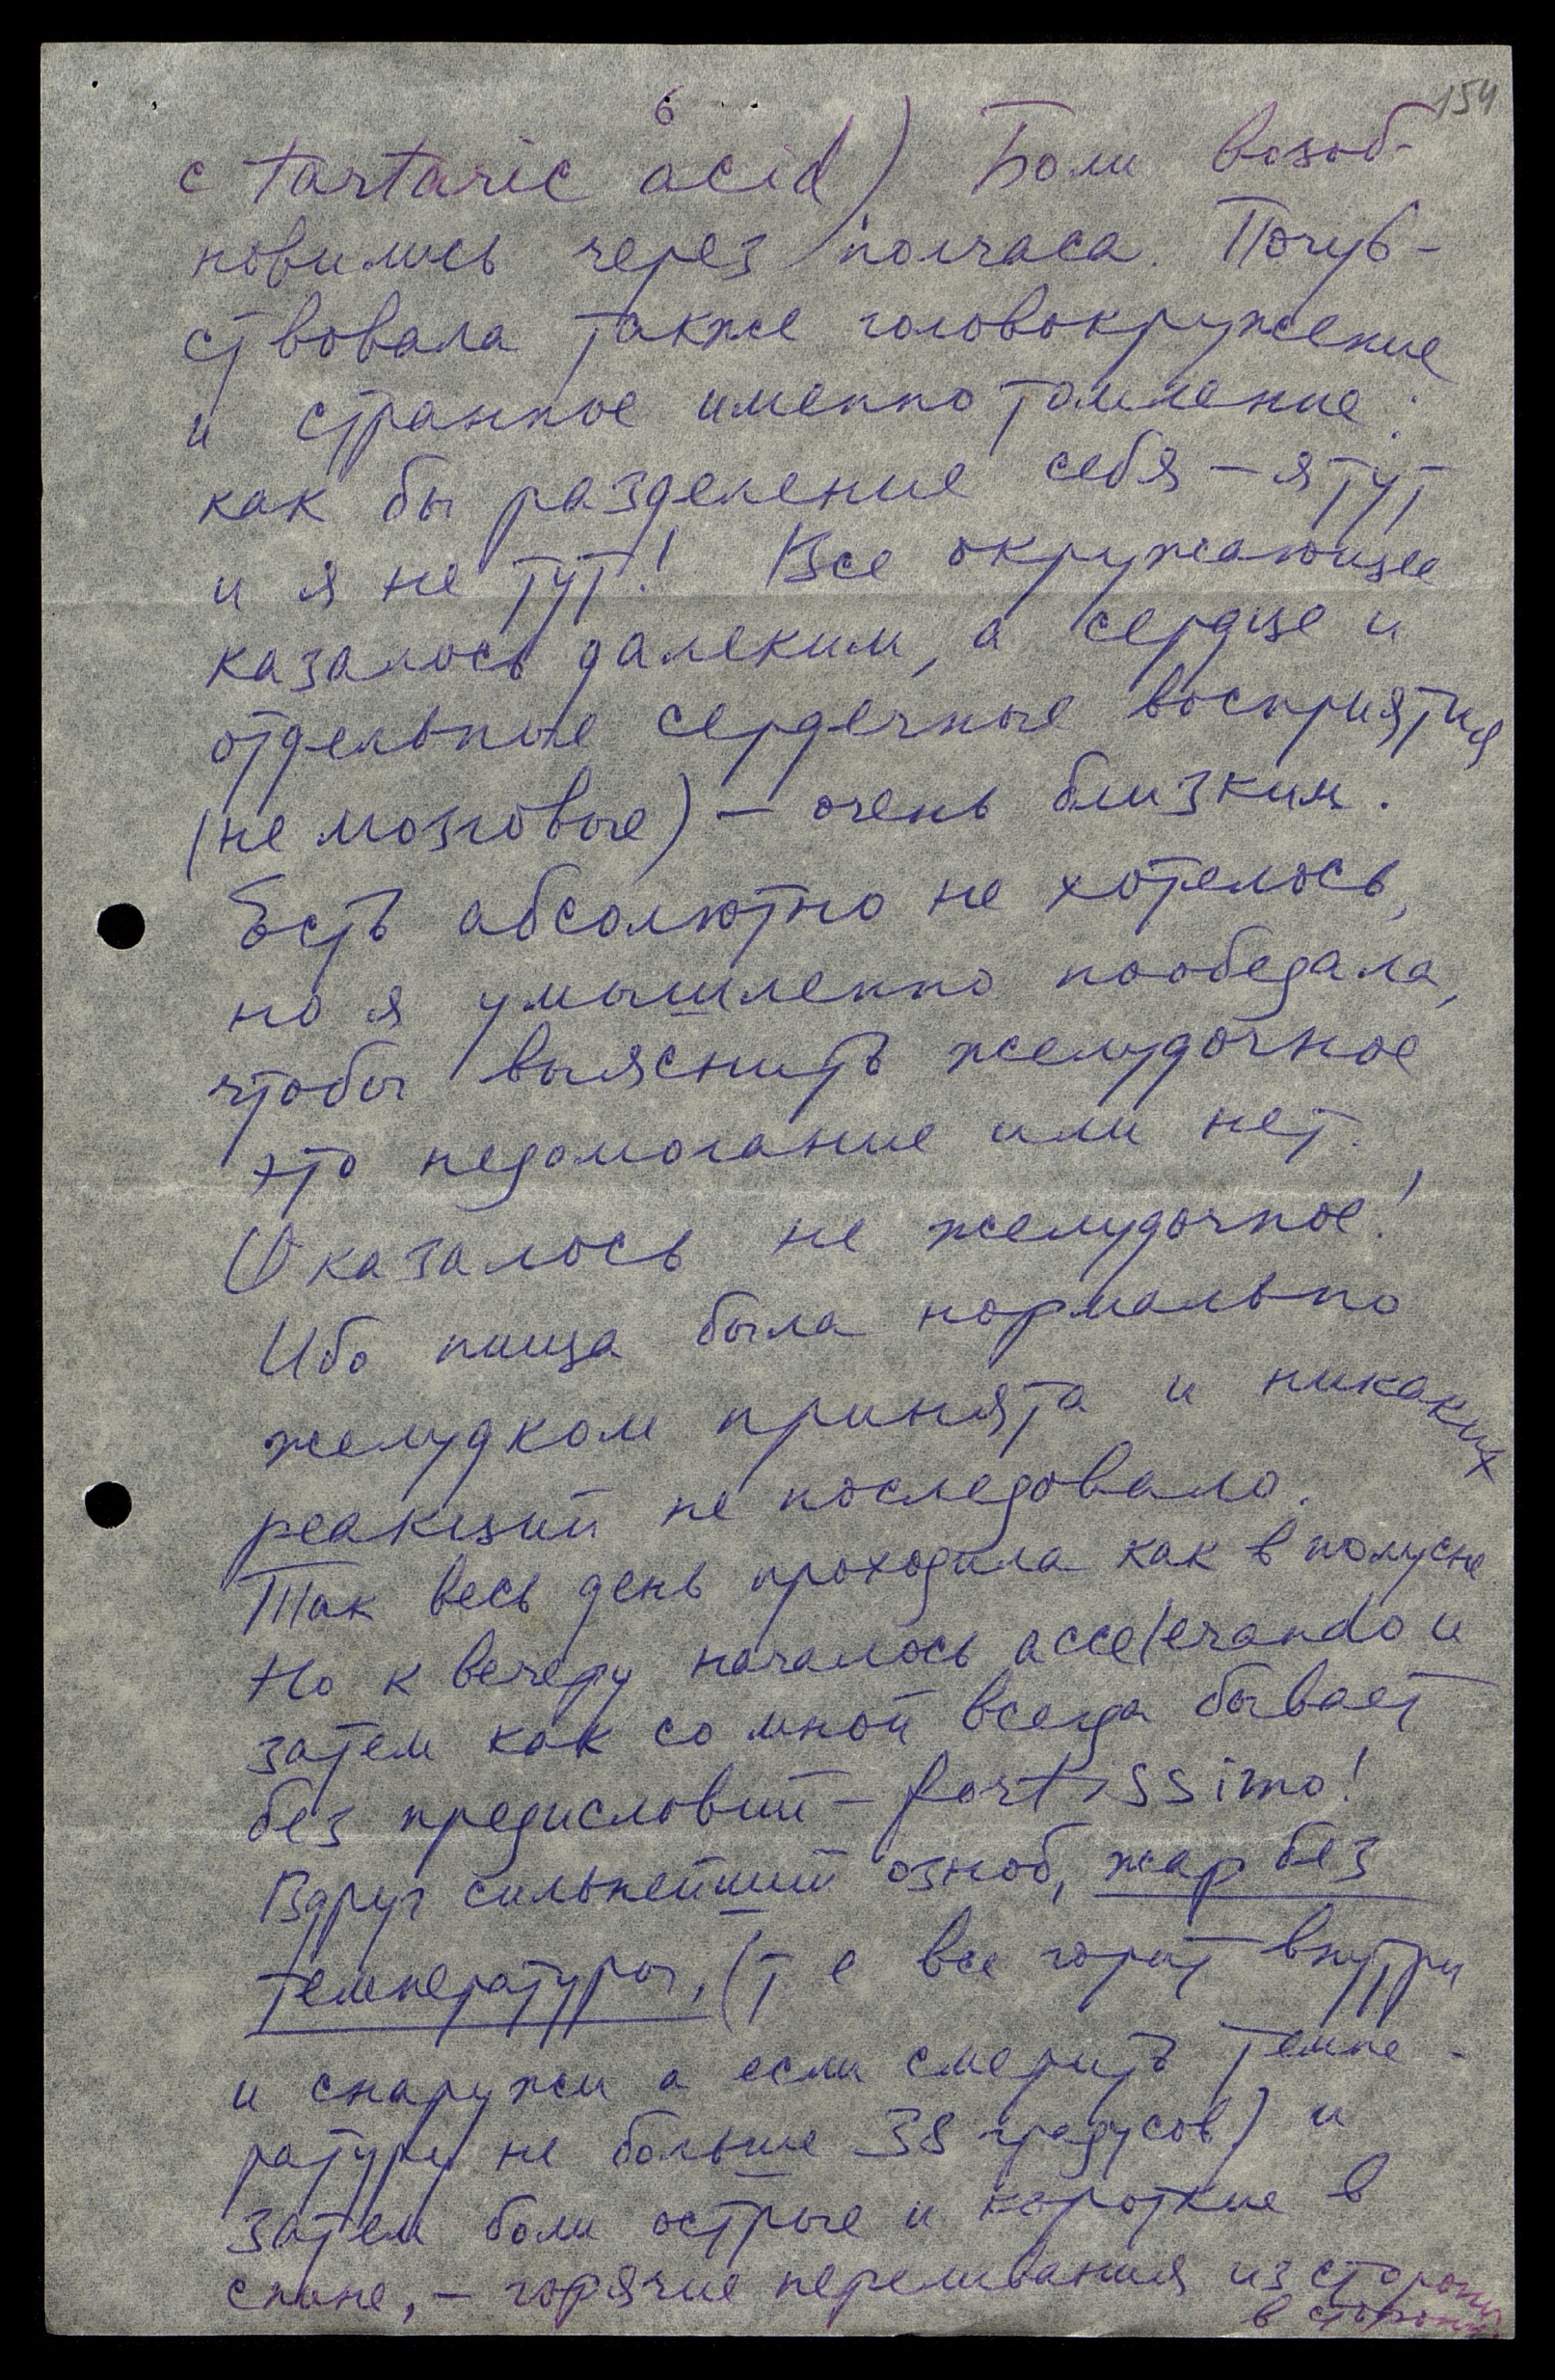 6
154
с tartaric acid) Боли возоб-
новились через полчаса. Почув-
ствовала также головокружение
и странное именно томление:
как бы разделение себя – я тут
и я не тут! Все окружающее
казалось далеким, а сердце и
отдельные сердечные восприятия
(не мозговые) – очень близким.
Есть абсолютно не хотелось,
но я умышленно пообедала,
чтобы выяснить желудочное
это недомогание или нет.
Оказалось не желудочное!
Ибо пища была нормально
желудком принята и никаких
реакций не последовало.
Так весь день проходила как в полусне
Но к вечеру началось accelerando и
затем как со мной всегда бывает
без предисловий – fortissimo!
Вдруг сильнейший озноб, жар без
температуры, (т е все горит внутри
и снаружи а если смерить темпе-
ратуру не больше 38 градусов) и
затем боли острые и короткие в
спине, – горячие переливания из стороны
в сторону.